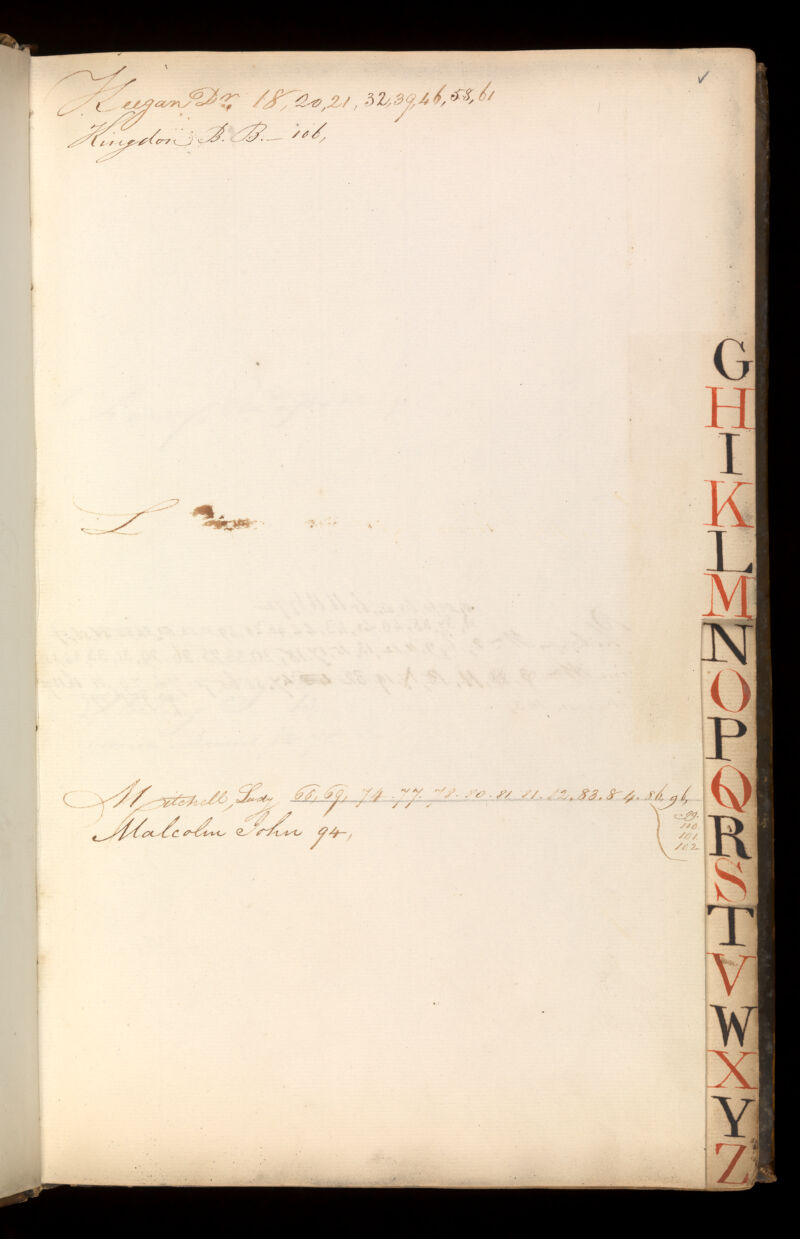 ✓
Keegan Dr. 18, 20, 21, 32, 39, 46, 58, 61
Kingdon B. B. — 106,
L
Mitchell, Lady 66, 69, 74. 77. 78. 80. 81. 81. 82. 83. 84. 86, 96,
99.
100.
101.
102
Malcolm John 94,
G
H
I
K
L
M
N
O
P
Q
R
S
T
V
W
X
Y
Z